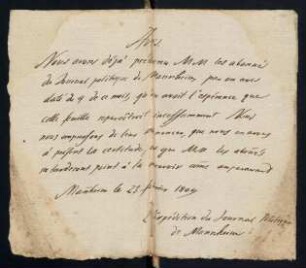 Avis
Nous avons déjà prévenu MM les abonnés
du Journal politique de Mannheim, par un avis
daté du 9 de ce mois, qu'on avoit l'espérance que
cette feuille reparoîtroit incessamment Nous
nous empressons de leur annoncer, que nous en avons
à présent la certitude, et que MM les abonnés
ne tarderont point à la recevoir comme auparavant
Manheim le 23 février 1809
L'expédition du Journal Politique
de Mannheim